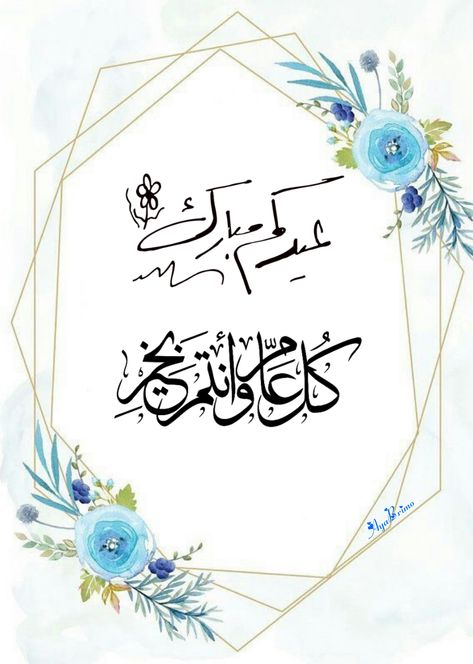 عيدكم مبارك
كُل عَامٍّ وَأنتم بِخَيرٍ
AyaPrimo